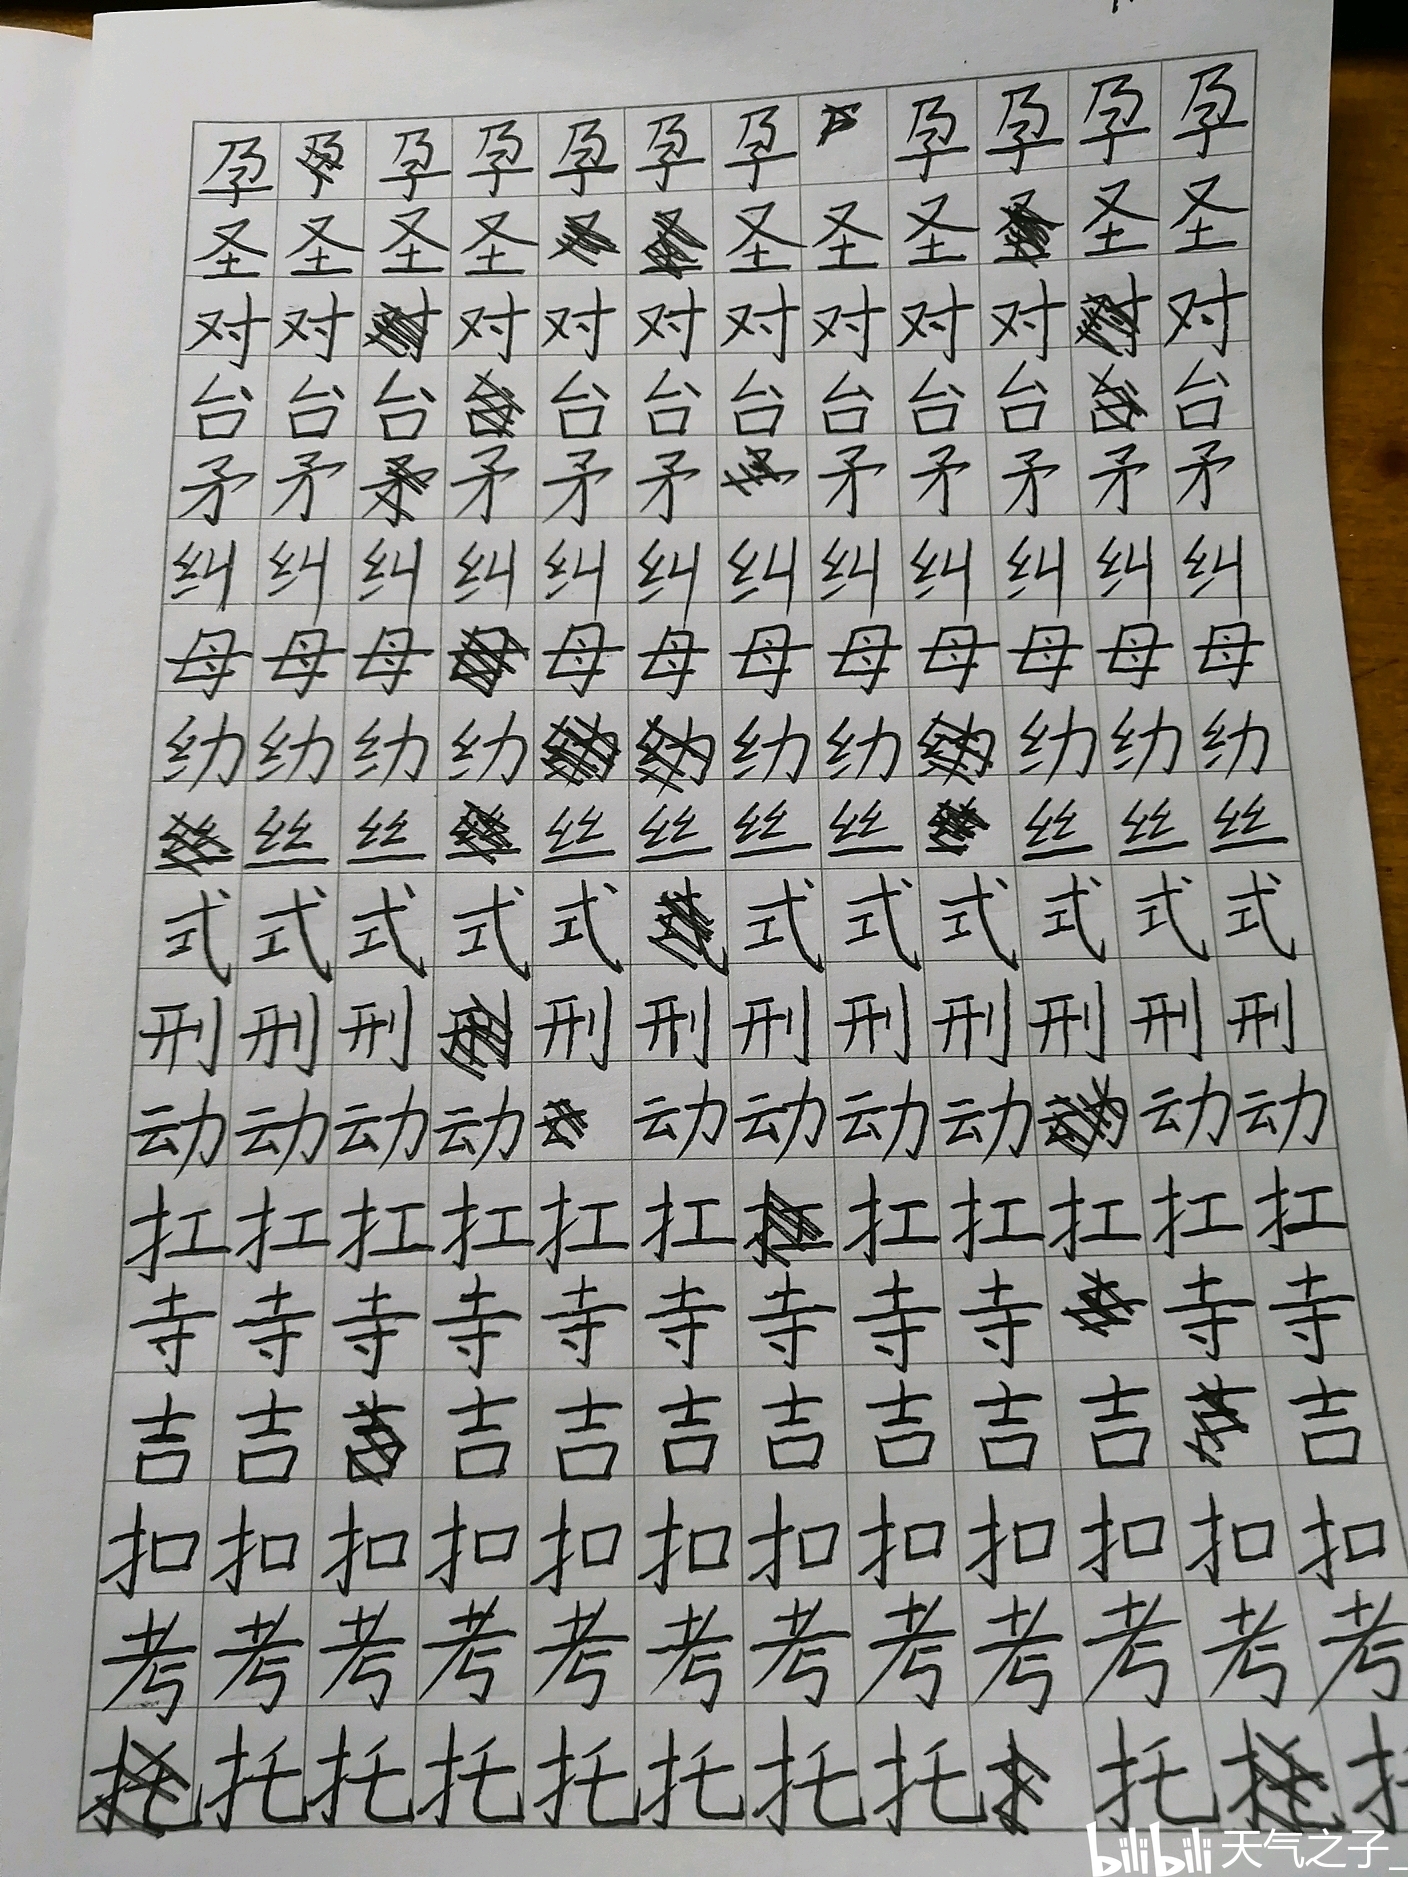 孕孕孕孕孕孕孕孕孕孕
圣圣圣圣圣圣圣圣圣
对对对对对对对对对对
台台台台台台台台台台
矛矛矛矛矛矛矛矛矛矛
纠纠纠纠纠纠纠纠纠纠纠纠
母母母母母母母母母母母
幼幼幼幼幼幼幼幼幼
丝丝丝丝丝丝丝丝丝
式式式式式式式式式式式
刑刑刑刑刑刑刑刑刑刑刑
动动动动动动动动动动
扛扛扛扛扛扛扛扛扛扛扛
寺寺寺寺寺寺寺寺寺寺寺
吉吉吉吉吉吉吉吉吉吉
扣扣扣扣扣扣扣扣扣扣扣扣
考考考考考考考考考考考考
托托托托托托托托
bilibili 天气之子_